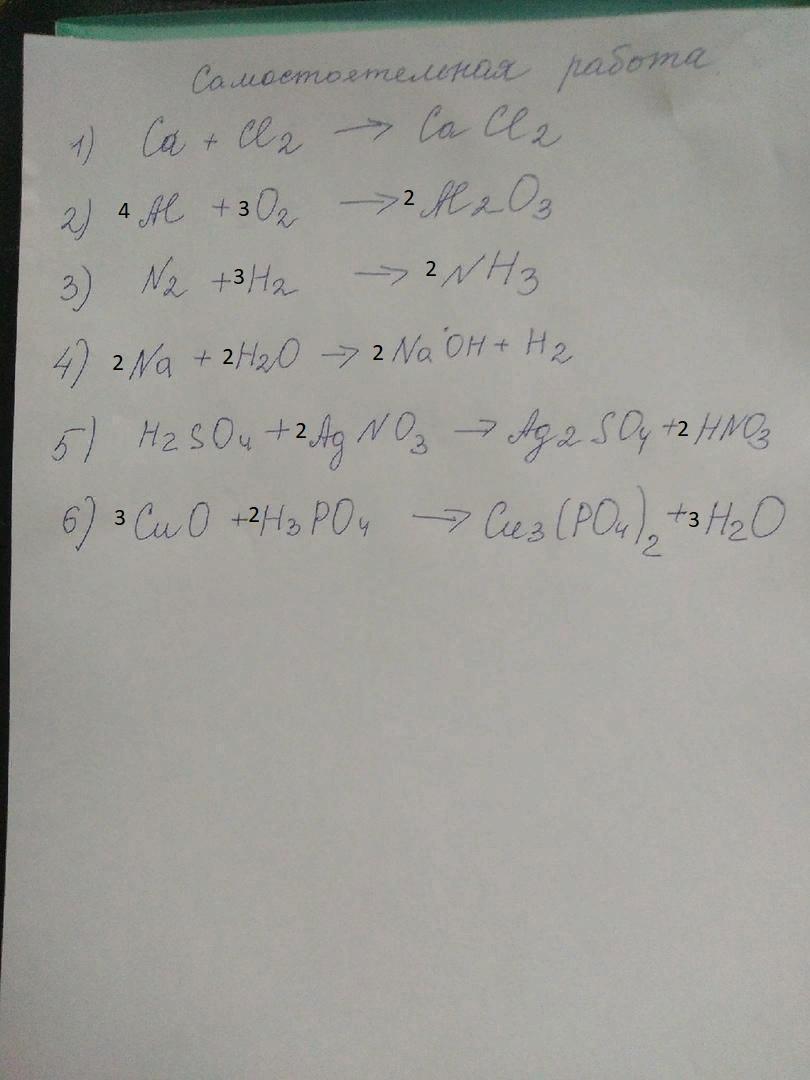 Самостоятельная работа
1) Ca + Cl2 → CaCl2
2) 4Al + 3O2 → 2Al2O3
3) N2 + 3H2 → 2NH3
4) 2Na + 2H2O → 2NaOH + H2
5) H2SO4 + 2AgNO3 → Ag2SO4 + 2HNO3
6) 3CuO + 2H3PO4 → Cu3(PO4)2 + 3H2O